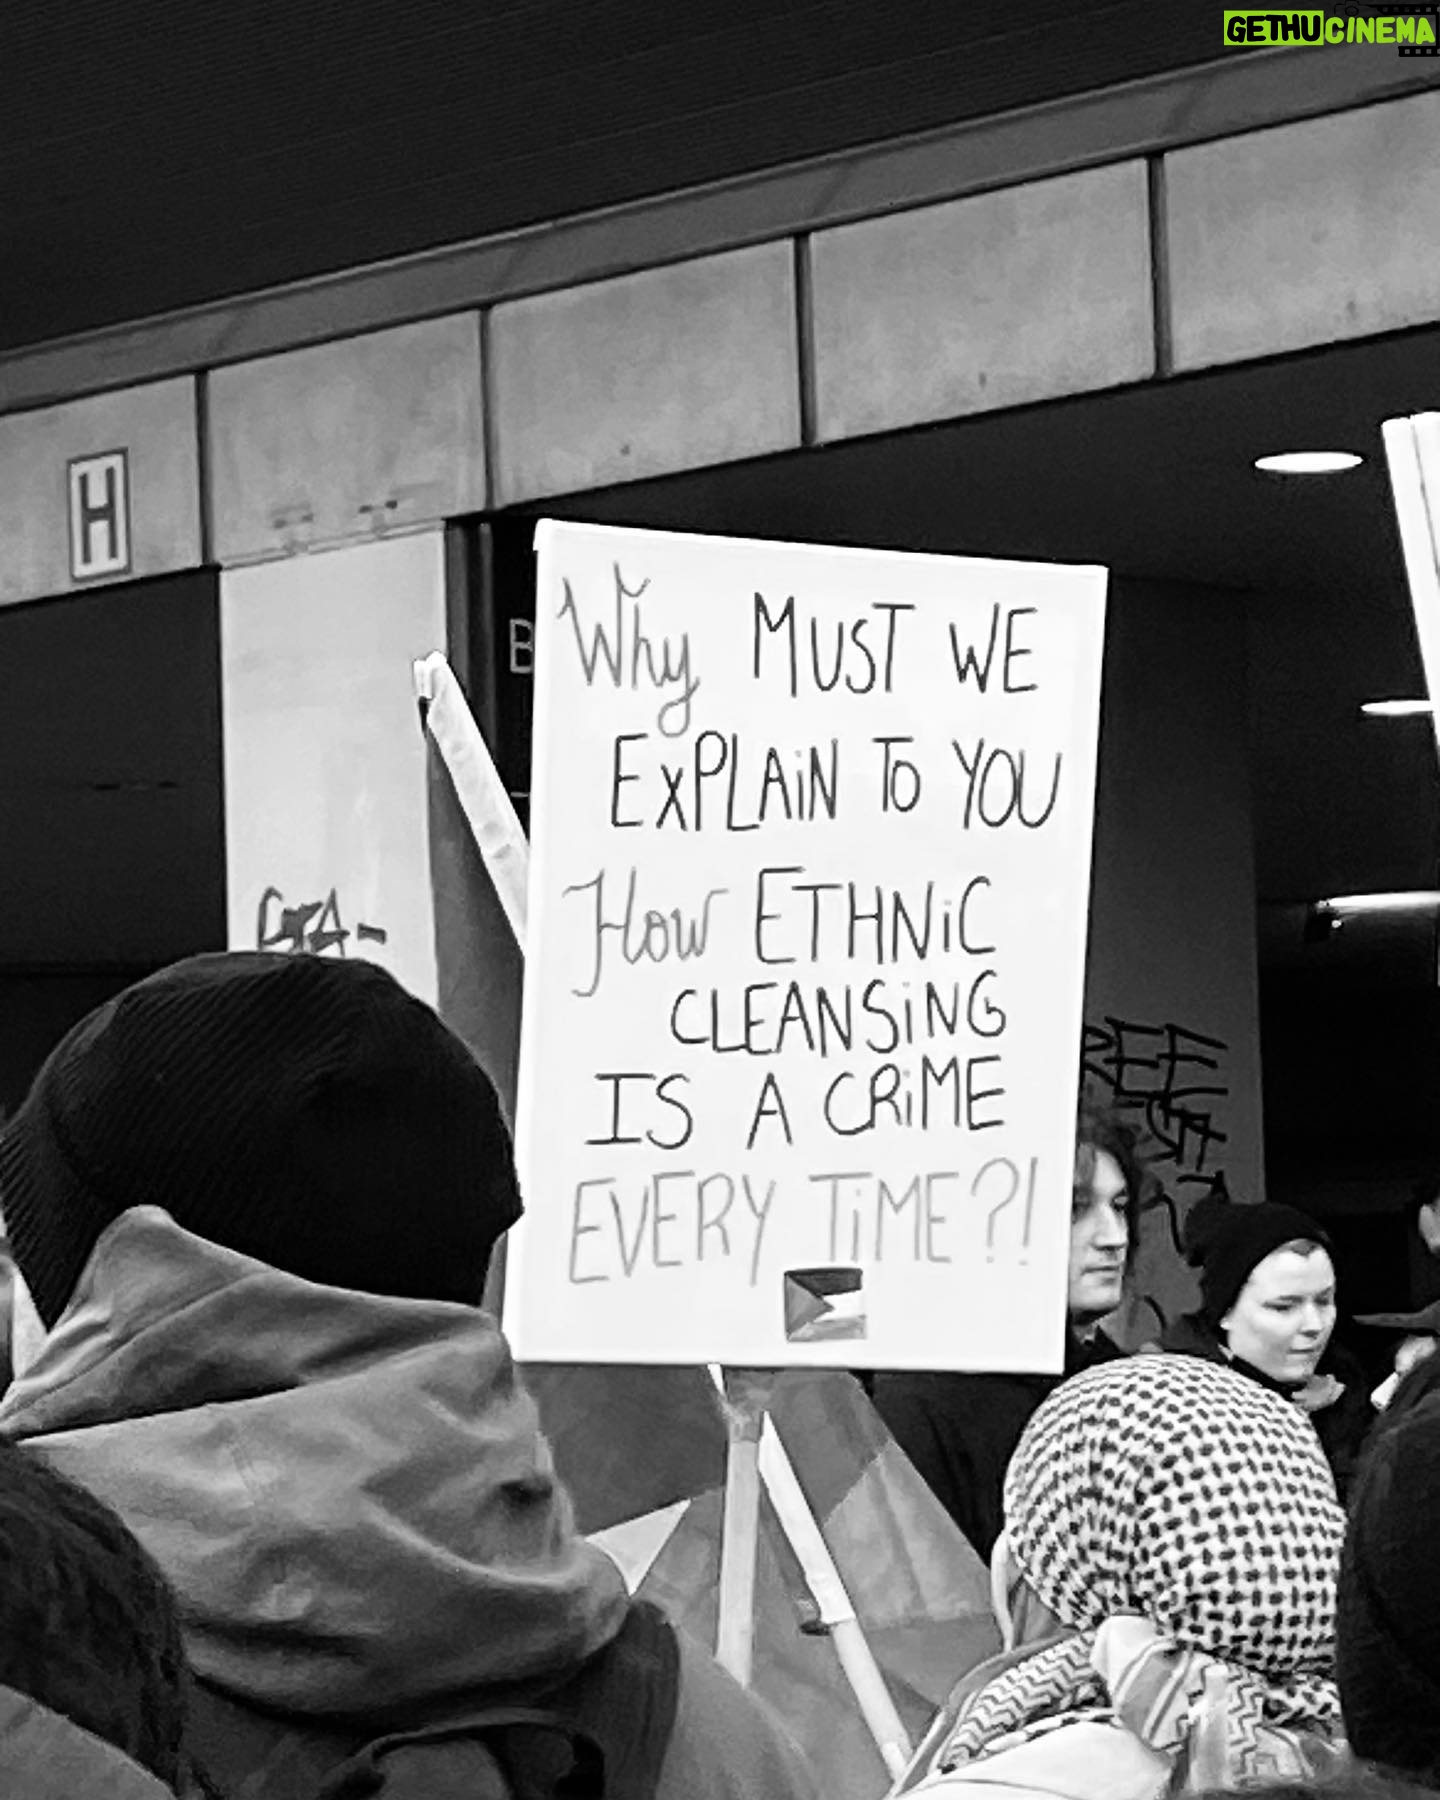 GETHUCINEMA
H
B
Why MUST WE
EXPLAiN TO YOU
How ETHNiC
CLEANSiNG
IS A CRiME
EVERY TiME?!